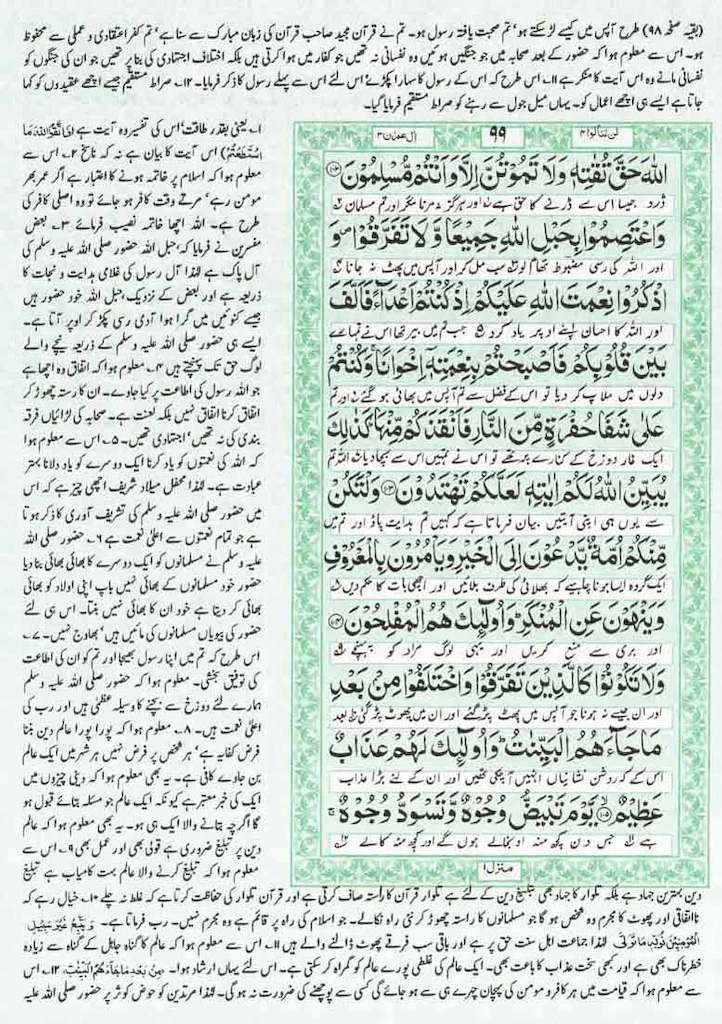 (بقیہ صفحہ ۹۸) طرح آپس میں کیسے لڑ سکتے ہو' تم صحبت یافتہ رسول ہو۔ تم نے قرآن مجید صاحب قرآن کی زبان مبارک سے سنا ہے' تم کفر اعتقادی و عملی سے محفوظ
ہو۔ اس سے معلوم ہوا کہ حضور کے بعد صحابہ میں جو جنگیں ہوئیں وہ نفسانی نہ تھیں جو کفار میں ہوا کرتی ہیں بلکہ اختلاف اجتہادی کی بنا پر تھیں جو ان کی جنگوں کو
نفسانی مانے وہ اس آیت کا منکر ہے ۱۱۔ اس طرح کہ اس کے رسول کا سہارا پکڑے' اس لئے اس سے پہلے رسول کا ذکر فرمایا۔ ۱۲۔ صراط مستقیم جیسے اچھے عقیدوں کو کہا
جاتا ہے ایسے ہی اچھے اعمال کو۔ یہاں میل جول سے رہنے کو صراط مستقیم فرمایا گیا۔
لن تنالوا ۴
۹۹
اٰل عمرٰن ۳
اللّٰهَ حَقَّ تُقٰتِهٖ وَلَا تَمُوْتُنَّ اِلَّا وَاَنْتُمْ مُّسْلِمُوْنَ ﴿۱۰۲﴾
ڈرو جیسا اس سے ڈرنے کا حق ہے اور ہرگز نہ مرنا مگر اور تم مسلمان
وَاعْتَصِمُوْا بِحَبْلِ اللّٰهِ جَمِيْعًا وَّلَا تَفَرَّقُوْا وَ
اور اللہ کی رسی مضبوط تھام لو سب مل کر اور آپس میں پھٹ نہ جانا
اذْكُرُوْا نِعْمَتَ اللّٰهِ عَلَيْكُمْ اِذْ كُنْتُمْ اَعْدَآءً فَاَلَّفَ
اور اللہ کا احسان اپنے اوپر یاد کرو جب تم میں بیر تھا اس نے تمہارے
بَيْنَ قُلُوْبِكُمْ فَاَصْبَحْتُمْ بِنِعْمَتِهٖٓ اِخْوَانًا وَكُنْتُمْ
دلوں میں ملاپ کر دیا تو اس کے فضل سے تم آپس میں بھائی ہو گئے اور تم
عَلٰى شَفَا حُفْرَةٍ مِّنَ النَّارِ فَاَنْقَذَكُمْ مِّنْهَا كَذٰلِكَ
ایک غار دوزخ کے کنارے پر تھے تو اس نے تمہیں اس سے بچا دیا اللہ تم
يُبَيِّنُ اللّٰهُ لَكُمْ اٰيٰتِهٖ لَعَلَّكُمْ تَهْتَدُوْنَ ﴿۱۰۳﴾ وَلْتَكُنْ
سے یوں ہی اپنی آیتیں بیان فرماتا ہے کہ کہیں تم ہدایت پاؤ اور تم میں
مِّنْكُمْ اُمَّةٌ يَّدْعُوْنَ اِلَى الْخَيْرِ وَيَاْمُرُوْنَ بِالْمَعْرُوْفِ
ایک گروہ ایسا ہونا چاہیے کہ بھلائی کی طرف بلائیں اور اچھی بات کا حکم دیں
وَيَنْهَوْنَ عَنِ الْمُنْكَرِ وَاُولٰٓئِكَ هُمُ الْمُفْلِحُوْنَ ﴿۱۰۴﴾
اور بری سے منع کریں اور یہی لوگ مراد کو پہنچے
وَلَا تَكُوْنُوْا كَالَّذِيْنَ تَفَرَّقُوْا وَاخْتَلَفُوْا مِنْۢ بَعْدِ
اور ان جیسے نہ ہونا جو آپس میں پھٹ گئے اور ان میں پھوٹ پڑ گئی بعد
مَا جَآءَهُمُ الْبَيِّنٰتُ وَاُولٰٓئِكَ لَهُمْ عَذَابٌ
اس کے کہ روشن نشانیاں انہیں آ چکی تھیں اور ان کے لئے بڑا عذاب
عَظِيْمٌ ﴿۱۰۵﴾ يَّوْمَ تَبْيَضُّ وُجُوْهٌ وَّتَسْوَدُّ وُجُوْهٌ
ہے جس دن کچھ منہ اونجالے ہوں گے اور کچھ منہ کالے
منزل ۱
۱۔ یعنی بقدر طاقت' اس کی تفسیر وہ آیت ہے فَاتَّقُوا اللّٰهَ مَا
اسْتَطَعْتُمْ) اس آیت کا بیان ہے نہ کہ ناسخ ۲۔ اس سے
معلوم ہوا کہ اسلام پر خاتمہ ہونے کا اعتبار ہے اگر عمر بھر
مومن رہے' مرتے وقت کافر ہو جائے تو وہ اصلی کافر کی
طرح ہے۔ اللہ اچھا خاتمہ نصیب فرمائے ۳۔ بعض
مفسرین نے فرمایا کہ حبل اللہ حضور صلی اللہ علیہ وسلم کی
آل پاک ہے لہٰذا آل رسول کی غلامی ہدایت و نجات کا
ذریعہ ہے اور بعض کے نزدیک حبل اللہ خود حضور ہیں
جیسے کنوئیں میں گرا ہوا آدمی رسی پکڑ کر اوپر آتا ہے۔
ایسے ہی حضور صلی اللہ علیہ وسلم کے ذریعہ نیچے والے
لوگ حق تک پہنچتے ہیں ۴۔ معلوم ہوا کہ اتفاق وہ اچھا ہے
جو اللہ رسول کی اطاعت پر کیا جاوے۔ ان کا رستہ چھوڑ کر
اتفاق کرنا اتفاق نہیں بلکہ لعنت ہے۔ صحابہ کی لڑائیاں فرقہ
بندی کی نہ تھیں' اجتہادی تھیں۔ ۵۔ اس سے معلوم ہوا
کہ اللہ کی نعمتوں کو یاد کرنا ایک دوسرے کو یاد دلانا بہتر
عبادت ہے۔ لہٰذا محفل میلاد شریف اچھی چیز ہے کہ اس
میں حضور صلی اللہ علیہ وسلم کی تشریف آوری کا ذکر ہوتا
ہے جو تمام نعمتوں سے اعلیٰ نعمت ہے ۶۔ حضور صلی اللہ
علیہ وسلم نے مسلمانوں کو ایک دوسرے کا بھائی بھائی بنا دیا
حضور خود مسلمانوں کے بھائی نہیں باپ اپنی اولاد کو بھائی
بھائی کر دیتا ہے خود ان کا بھائی نہیں بنتا۔ اس ہی لئے
حضور کی بیویاں مسلمانوں کی مائیں ہیں' بھاوج نہیں۔ ۷۔
اس طرح کہ تم میں اپنا رسول بھیجا اور تم کو ان کی اطاعت
کی توفیق بخشی۔ معلوم ہوا کہ حضور صلی اللہ علیہ وسلم
ہمارے لئے دوزخ سے بچنے کا وسیلہ عظمیٰ ہیں اور رب کی
اعلیٰ نعمت ہیں۔ ۸۔ معلوم ہوا کہ پورا پورا عالم دین بننا
فرض کفایہ ہے' ہر شخص پر فرض نہیں ہر شہر میں ایک عالم
بن جاوے کافی ہے۔ یہ بھی معلوم ہوا کہ دینی چیزوں میں
ایک کی خبر معتبر ہے کیونکہ ایک عالم جو مسئلہ بتائے قبول ہو
گا اگرچہ بتانے والا ایک ہی ہو۔ یہ بھی معلوم ہوا کہ عالم
دین پر تبلیغ ضروری ہے قولی بھی اور عمل بھی ۹۔ اس سے
معلوم ہوا کہ تبلیغ کرنے والا عالم بہت کامیاب ہے تبلیغ
دین بہترین جہاد ہے بلکہ تلوار کا جہاد بھی تبلیغ دین کے لئے ہے تلوار قرآن کا راستہ صاف کرتی ہے اور قرآن تلوار کی حفاظت کرتا ہے کہ غلط نہ چلے ۱۰۔ خیال رہے کہ
نااتفاقی اور پھوٹ کا مجرم وہ شخص ہو گا جو مسلمانوں کا راستہ چھوڑ کر نئی راہ نکالے۔ جو اسلام کی راہ پر قائم ہے وہ مجرم نہیں۔ رب فرماتا ہے۔ وَيَتَّبِعْ غَيْرَ سَبِيْلِ
الْمُؤْمِنِيْنَ نُوَلِّهٖ مَا تَوَلّٰى لہٰذا جماعت اہل سنت حق پر ہے اور باقی سب فرقے پھوٹ ڈالنے والے ہیں ۱۱۔ اس سے معلوم ہوا کہ عالم کا گناہ جاہل کے گناہ سے زیادہ
خطرناک بھی ہے اور کبھی سخت عذاب کا باعث بھی۔ ایک عالم کی غلطی پورے عالم کو گمراہ کر سکتی ہے۔ اس لئے یہاں ارشاد ہوا۔ مِنْۢ بَعْدِ مَا جَآءَهُمُ الْبَيِّنٰتُ ۱۲۔ اس
سے معلوم ہوا کہ قیامت میں ہر کافر و مومن کی پہچان چہرے ہی سے ہو جائے گی کسی سے پوچھنے کی ضرورت نہ ہو گی۔ لہٰذا مرتدین کو حوض کوثر پر حضور صلی اللہ علیہ